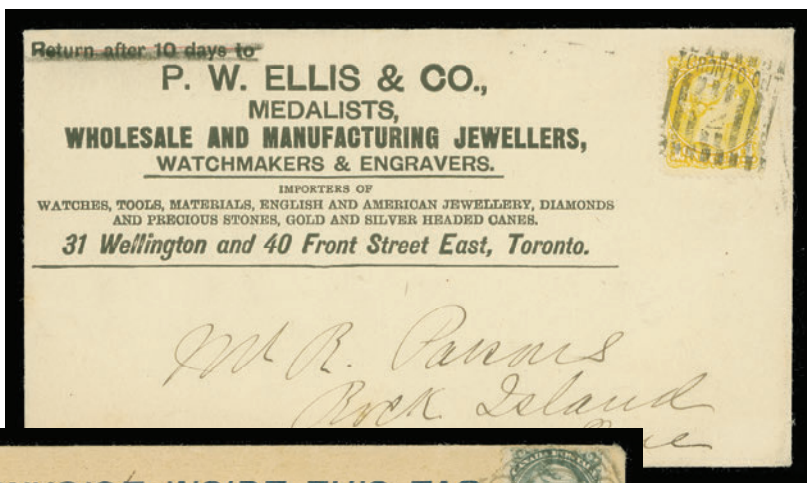 Return after 10 days to
P. W. ELLIS & CO.,
MEDALISTS,
WHOLESALE AND MANUFACTURING JEWELLERS,
WATCHMAKERS & ENGRAVERS.
IMPORTERS OF
WATCHES, TOOLS, MATERIALS, ENGLISH AND AMERICAN JEWELLERY, DIAMONDS
AND PRECIOUS STONES, GOLD AND SILVER HEADED CANES.
31 Wellington and 40 Front Street East, Toronto.
TORONTO
2
Mr R. Parsons
Rock Island
Que
CANADA POSTAGE
INSIDE THIS